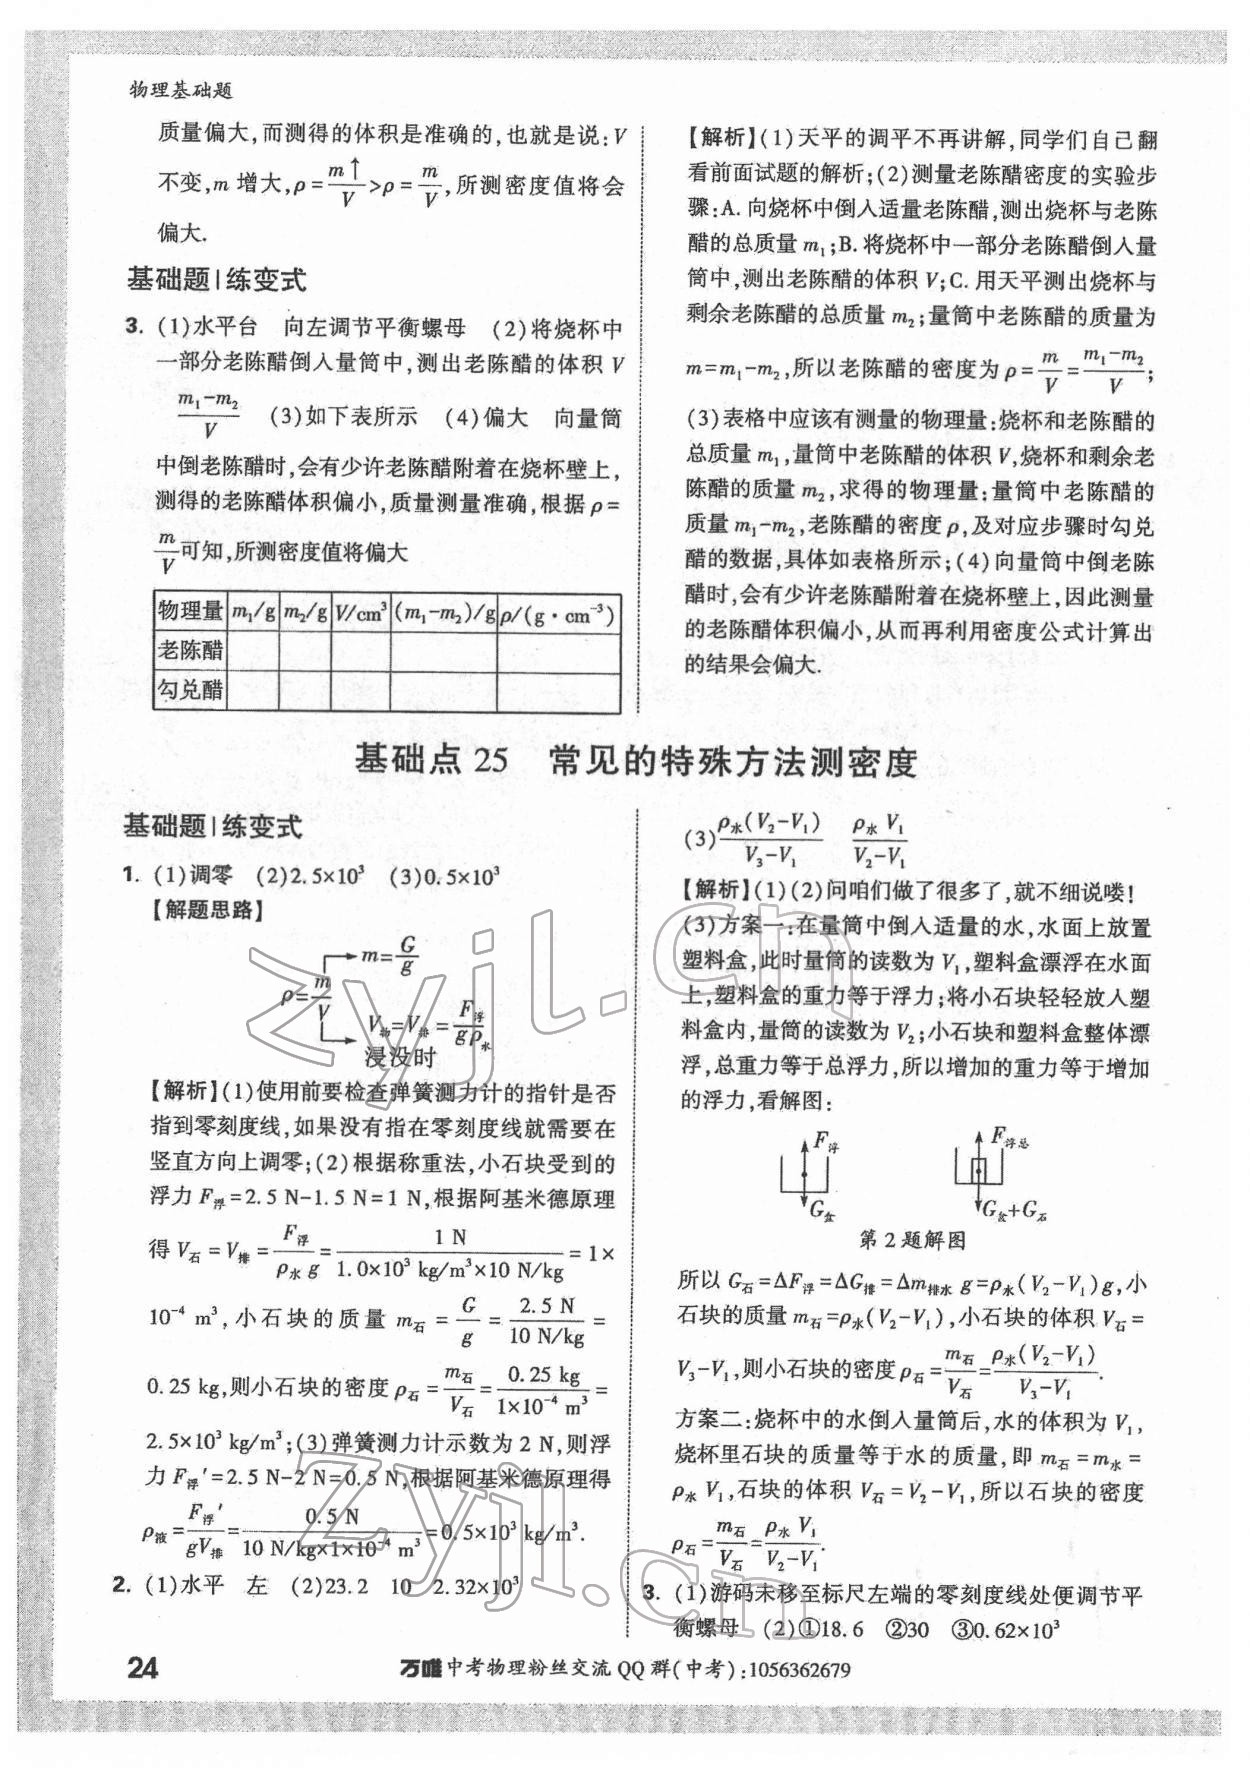 物理基础题
质量偏大,而测得的体积是准确的,也就是说:V
不变,m 增大,ρ=m↑/V>ρ=m/V,所测密度值将会
偏大.
基础题|练变式
3. (1)水平台 向左调节平衡螺母 (2)将烧杯中
一部分老陈醋倒入量筒中,测出老陈醋的体积 V
(m₁-m₂)/V (3)如下表所示 (4)偏大 向量筒
中倒老陈醋时,会有少许老陈醋附着在烧杯壁上,
测得的老陈醋体积偏小,质量测量准确,根据 ρ=
m/V可知,所测密度值将偏大
物理量 m₁/g m₂/g V/cm³ (m₁-m₂)/g ρ/(g·cm⁻³)
老陈醋
勾兑醋
【解析】(1)天平的调平不再讲解,同学们自己翻
看前面试题的解析;(2)测量老陈醋密度的实验步
骤:A. 向烧杯中倒入适量老陈醋,测出烧杯与老陈
醋的总质量 m₁;B. 将烧杯中一部分老陈醋倒入量
筒中,测出老陈醋的体积 V;C. 用天平测出烧杯与
剩余老陈醋的总质量 m₂;量筒中老陈醋的质量为
m=m₁-m₂,所以老陈醋的密度为 ρ=m/V=(m₁-m₂)/V;
(3)表格中应该有测量的物理量:烧杯和老陈醋的
总质量 m₁,量筒中老陈醋的体积 V,烧杯和剩余老
陈醋的质量 m₂,求得的物理量:量筒中老陈醋的
质量 m₁-m₂,老陈醋的密度 ρ,及对应步骤时勾兑
醋的数据,具体如表格所示;(4)向量筒中倒老陈
醋时,会有少许老陈醋附着在烧杯壁上,因此测量
的老陈醋体积偏小,从而再利用密度公式计算出
的结果会偏大.
基础点 25 常见的特殊方法测密度
基础题|练变式
1. (1)调零 (2)2.5×10³ (3)0.5×10³
【解题思路】
m=G/g
ρ=m/V
V物=V排=F浮/gρ水
浸没时
【解析】(1)使用前要检查弹簧测力计的指针是否
指到零刻度线,如果没有指在零刻度线就需要在
竖直方向上调零;(2)根据称重法,小石块受到的
浮力 F浮=2.5 N-1.5 N=1 N,根据阿基米德原理
得 V石=V排=F浮/(ρ水 g)=1 N/(1.0×10³ kg/m³×10 N/kg)=1×
10⁻⁴ m³,小石块的质量 m石=G/g=2.5 N/(10 N/kg)=
0.25 kg,则小石块的密度 ρ石=m石/V石=0.25 kg/(1×10⁻⁴ m³)=
2.5×10³ kg/m³;(3)弹簧测力计示数为 2 N,则浮
力 F浮′=2.5 N-2 N=0.5 N,根据阿基米德原理得
ρ液=F浮′/(gV排)=0.5 N/(10 N/kg×1×10⁻⁴ m³)=0.5×10³ kg/m³.
2. (1)水平 左 (2)23.2 10 2.32×10³
(3)ρ水(V₂-V₁)/(V₃-V₁) ρ水 V₁/(V₂-V₁)
【解析】(1)(2)问咱们做了很多了,就不细说喽!
(3)方案一:在量筒中倒入适量的水,水面上放置
塑料盒,此时量筒的读数为 V₁,塑料盒漂浮在水面
上,塑料盒的重力等于浮力;将小石块轻轻放入塑
料盒内,量筒的读数为 V₂;小石块和塑料盒整体漂
浮,总重力等于总浮力,所以增加的重力等于增加
的浮力,看解图:
F浮 F浮总
G盒 G盒+G石
第 2 题解图
所以 G石=ΔF浮=ΔG排=Δm排水 g=ρ水(V₂-V₁)g,小
石块的质量 m石=ρ水(V₂-V₁),小石块的体积 V石=
V₃-V₁,则小石块的密度 ρ石=m石/V石=ρ水(V₂-V₁)/(V₃-V₁).
方案二:烧杯中的水倒入量筒后,水的体积为 V₁,
烧杯里石块的质量等于水的质量,即 m石=m水=
ρ水 V₁,石块的体积 V石=V₂-V₁,所以石块的密度
ρ石=m石/V石=ρ水 V₁/(V₂-V₁).
3. (1)游码未移至标尺左端的零刻度线处便调节平
衡螺母 (2)①18.6 ②30 ③0.62×10³
24 万唯中考物理粉丝交流 QQ 群(中考):1056362679
zyjl.cn
zyjl.cn